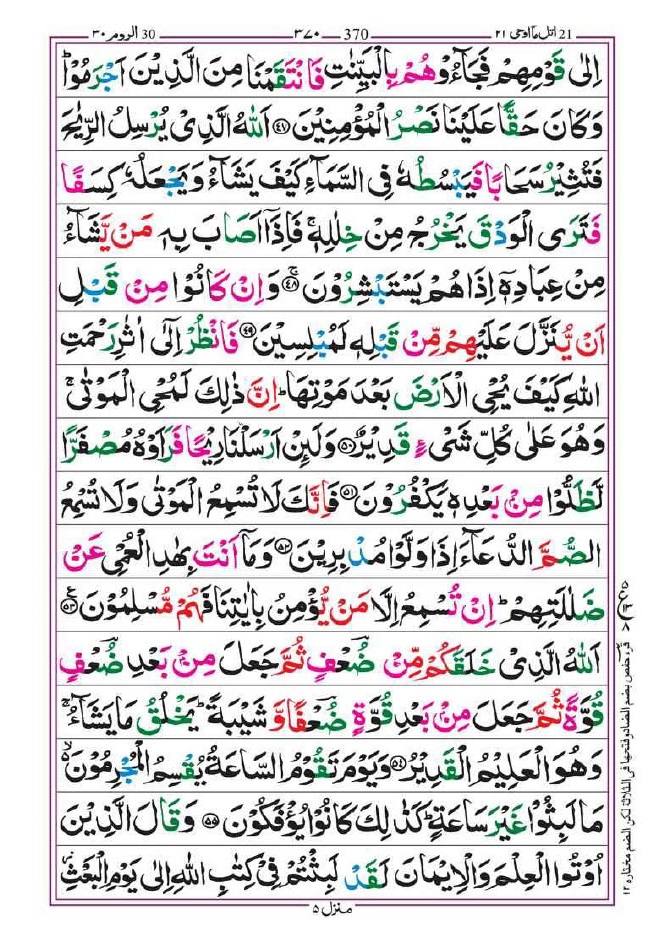 21 اتل ما اوحی ۲۱ 370 ۳۷۰ 30 الروم ۳۰
اِلٰى قَوْمِهِمْ فَجَآءُوْهُمْ بِالْبَيِّنٰتِ فَانْتَقَمْنَا مِنَ الَّذِيْنَ اَجْرَمُوْاؕ
وَكَانَ حَقًّا عَلَيْنَا نَصْرُ الْمُؤْمِنِيْنَ ۴۷ اَللّٰهُ الَّذِىْ يُرْسِلُ الرِّيٰحَ
فَتُثِيْرُ سَحَابًا فَيَبْسُطُهٗ فِى السَّمَآءِ كَيْفَ يَشَآءُ وَيَجْعَلُهٗ كِسَفًا
فَتَرَى الْوَدْقَ يَخْرُجُ مِنْ خِلٰلِهٖۚ فَاِذَاۤ اَصَابَ بِهٖ مَنْ يَّشَآءُ
مِنْ عِبَادِهٖۤ اِذَا هُمْ يَسْتَبْشِرُوْنَۚ ۴۸ وَاِنْ كَانُوْا مِنْ قَبْلِ
اَنْ يُّنَزَّلَ عَلَيْهِمْ مِّنْ قَبْلِهٖ لَمُبْلِسِيْنَ ۴۹ فَانْظُرْ اِلٰٓى اٰثٰرِ رَحْمَتِ
اللّٰهِ كَيْفَ يُحْىِ الْاَرْضَ بَعْدَ مَوْتِهَاؕ اِنَّ ذٰلِكَ لَمُحْىِ الْمَوْتٰىۚ
وَهُوَ عَلٰى كُلِّ شَىْءٍ قَدِيْرٌ ۵۰ وَلَئِنْ اَرْسَلْنَا رِيْحًا فَرَاَوْهُ مُصْفَرًّا
لَّظَلُّوْا مِنْۢ بَعْدِهٖ يَكْفُرُوْنَ ۵۱ فَاِنَّكَ لَا تُسْمِعُ الْمَوْتٰى وَلَا تُسْمِعُ
الصُّمَّ الدُّعَآءَ اِذَا وَلَّوْا مُدْبِرِيْنَ ۵۲ وَمَاۤ اَنْتَ بِهٰدِ الْعُمْىِ عَنْ
ضَلٰلَتِهِمْؕ اِنْ تُسْمِعُ اِلَّا مَنْ يُّؤْمِنُ بِاٰيٰتِنَا فَهُمْ مُّسْلِمُوْنَ ۵۳
اَللّٰهُ الَّذِىْ خَلَقَكُمْ مِّنْ ضُعْفٍ ثُمَّ جَعَلَ مِنْۢ بَعْدِ ضُعْفٍ
قُوَّةً ثُمَّ جَعَلَ مِنْۢ بَعْدِ قُوَّةٍ ضُعْفًا وَّشَيْبَةًؕ يَخْلُقُ مَا يَشَآءُۚ
وَهُوَ الْعَلِيْمُ الْقَدِيْرُ ۵۴ وَيَوْمَ تَقُوْمُ السَّاعَةُ يُقْسِمُ الْمُجْرِمُوْنَۙ
مَا لَبِثُوْا غَيْرَ سَاعَةٍؕ كَذٰلِكَ كَانُوْا يُؤْفَكُوْنَ ۵۵ وَقَالَ الَّذِيْنَ
اُوْتُوا الْعِلْمَ وَالْاِيْمَانَ لَقَدْ لَبِثْتُمْ فِىْ كِتٰبِ اللّٰهِ اِلٰى يَوْمِ الْبَعْثِ
منزل ۵
قرء حفص بضم الضاد وفتحها فی الثلاثة لکن الضم مختاره ۱۲